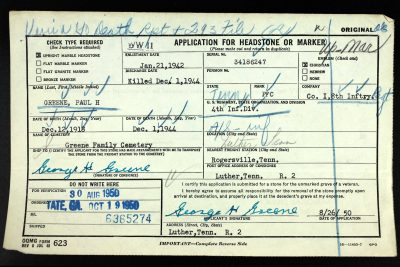 ORIGINAL
CHECK TYPE REQUIRED
(See Instructions attached)
WWII
APPLICATION FOR HEADSTONE OR MARKER
(Please make out and return in duplicate)
UPRIGHT MARBLE HEADSTONE
FLAT MARBLE MARKER
FLAT GRANITE MARKER
BRONZE MARKER
ENLISTMENT DATE
Jan.21,1942
DISCHARGE DATE
Killed Dec.1,1944
SERIAL NUMBER
34186247
EMBLEM (Check one)
CHRISTIAN
HEBREW
NONE
NAME (Last, First, Middle Initial)
GREENE, PAUL H
STATE
Tenn
RANK
PFC
COMPANY
Co. I,8th Inftry
U.S. REGIMENT, STATE ORGANIZATION, AND DIVISION
4th Inf.Div.
DATE OF BIRTH (Month, Day, Year)
Dec.12,1918
DATE OF DEATH (Month, Day, Year)
Dec. 1,1944
NAME OF CEMETERY
Greene Family Cemetery
LOCATION (City and State)
Luther Tenn
SHIP TO
George H. Greene
(SIGNATURE OF CONSIGNEE)
NEAREST FREIGHT STATION (City and State)
Rogersville,Tenn.
POST OFFICE ADDRESS OF CONSIGNEE
Luther,Tenn. R. 2
DO NOT WRITE HERE
FOR VERIFICATION
30 AUG 1950
TATE, GA. OCT 19 1950
6365274
I certify this application is submitted for a stone for the unmarked grave of a veteran.
I hereby agree to assume all responsibility for the removal of the stone promptly upon arrival at destination, and properly place it at decedent's grave at my expense.
George H. Greene
APPLICANT'S SIGNATURE
8/26/50
DATE OF APPLICATION
Luther,Tenn. R. 2
ADDRESS (Street, City and State)
OQMG FORM 623
IMPORTANT—Complete Reverse Side
GPO